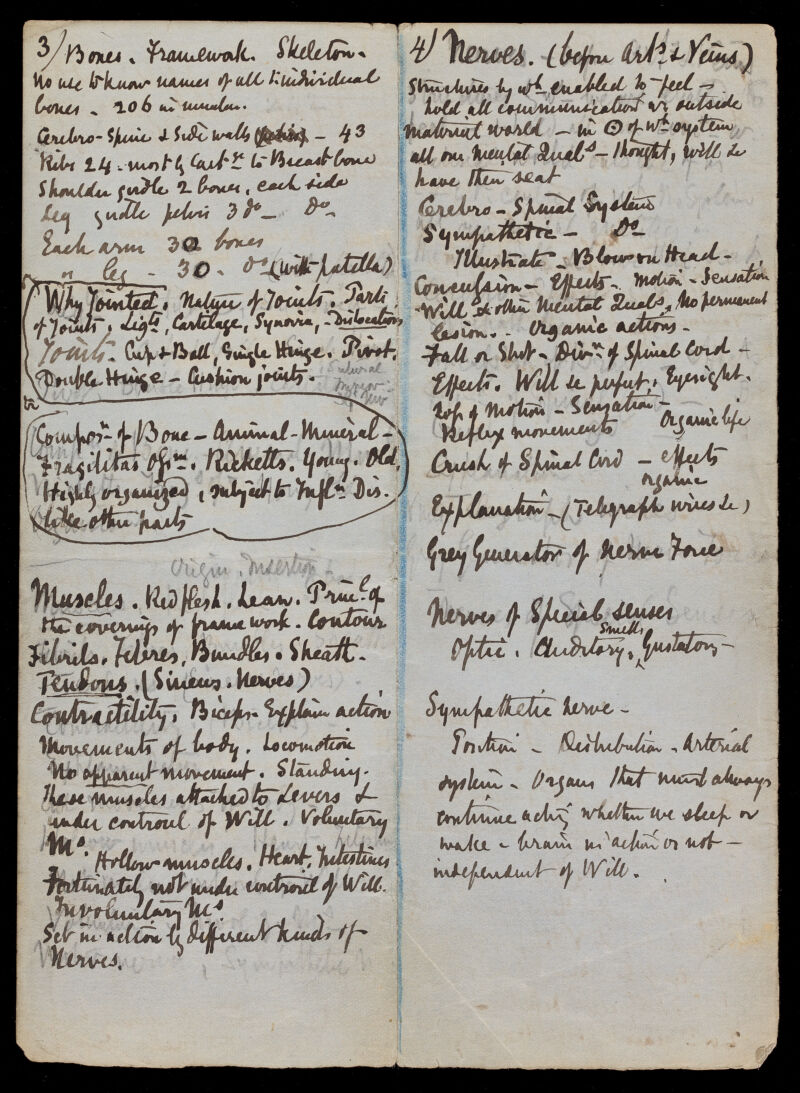 3) Bones. Framework. Skeleton.
No use to know names of all individual
bones. 206 in number.
Cerebro-Spine & Side walls (pelvis) - 43
Ribs 24 - mostly Cartge to Breast bone
Shoulder girdle 2 bones, each side
Leg girdle pelvis 3 do - Do -
Each arm 30 bones
" leg - 30. Do (with patella)
Why Jointed. Nature of Joints. Parts
of Joints. Ligts, Cartilage, Synovia, - Dislocations
Joints - Cup & Ball, Single Hinge. Pivot.
Double Hinge - Cushion joints.
Composn of Bone - Animal - Mineral -
Fragilitas Ossm. Ricketts. Young. Old.
Highly organized, subject to Infln Dis.
like other parts
Origin. Insertion -
Muscles. Red flesh. Lean. Princl of
the coverings of framework. Contour
Fibrils. Fibres, Bundles. Sheath -
Tendons. (Sinews. Nerves)
Contractility. Biceps - Explain action
Movements of body. Locomotion
No apparent movement. Standing.
These muscles attached to Levers &
under controul of Will. Voluntary
Ms.
Hollow muscles. Heart, Intestines
Fortunately not under controul of Will.
Involuntary Ms
Set in action by different kinds of
Nerves.
4) Nerves. (before Arts & Veins)
Structures by wh enabled to feel -
hold all communication wh outside
material world - in ⊙ of wh system
all our mental Quals - thought, will &c
have their seat
Cerebro - Spinal System
Sympathetic - Do
Illustrate - Blow on Head -
Concussion - Effects - Motion - Sensation
Will & other Mental Quals, No permanent
lesion. - Organic actions -
Fall or Shot - Divn of Spinal Cord -
Effects. Will &c perfect. Eyesight.
Loss of Motion - Sensation -
Reflex movements Organic life
Crush of Spinal Cord - effects
organic
Explanation - (Telegraph wires &c)
Grey Generator of Nerve Force
Nerves of Special senses
Smells
Optic. Auditory, Gustatory -
Sympathetic nerve -
Position - Distribution - Arterial
system - Organs that must always
continue acting whether we sleep or
wake - brain in action or not -
independent of Will.